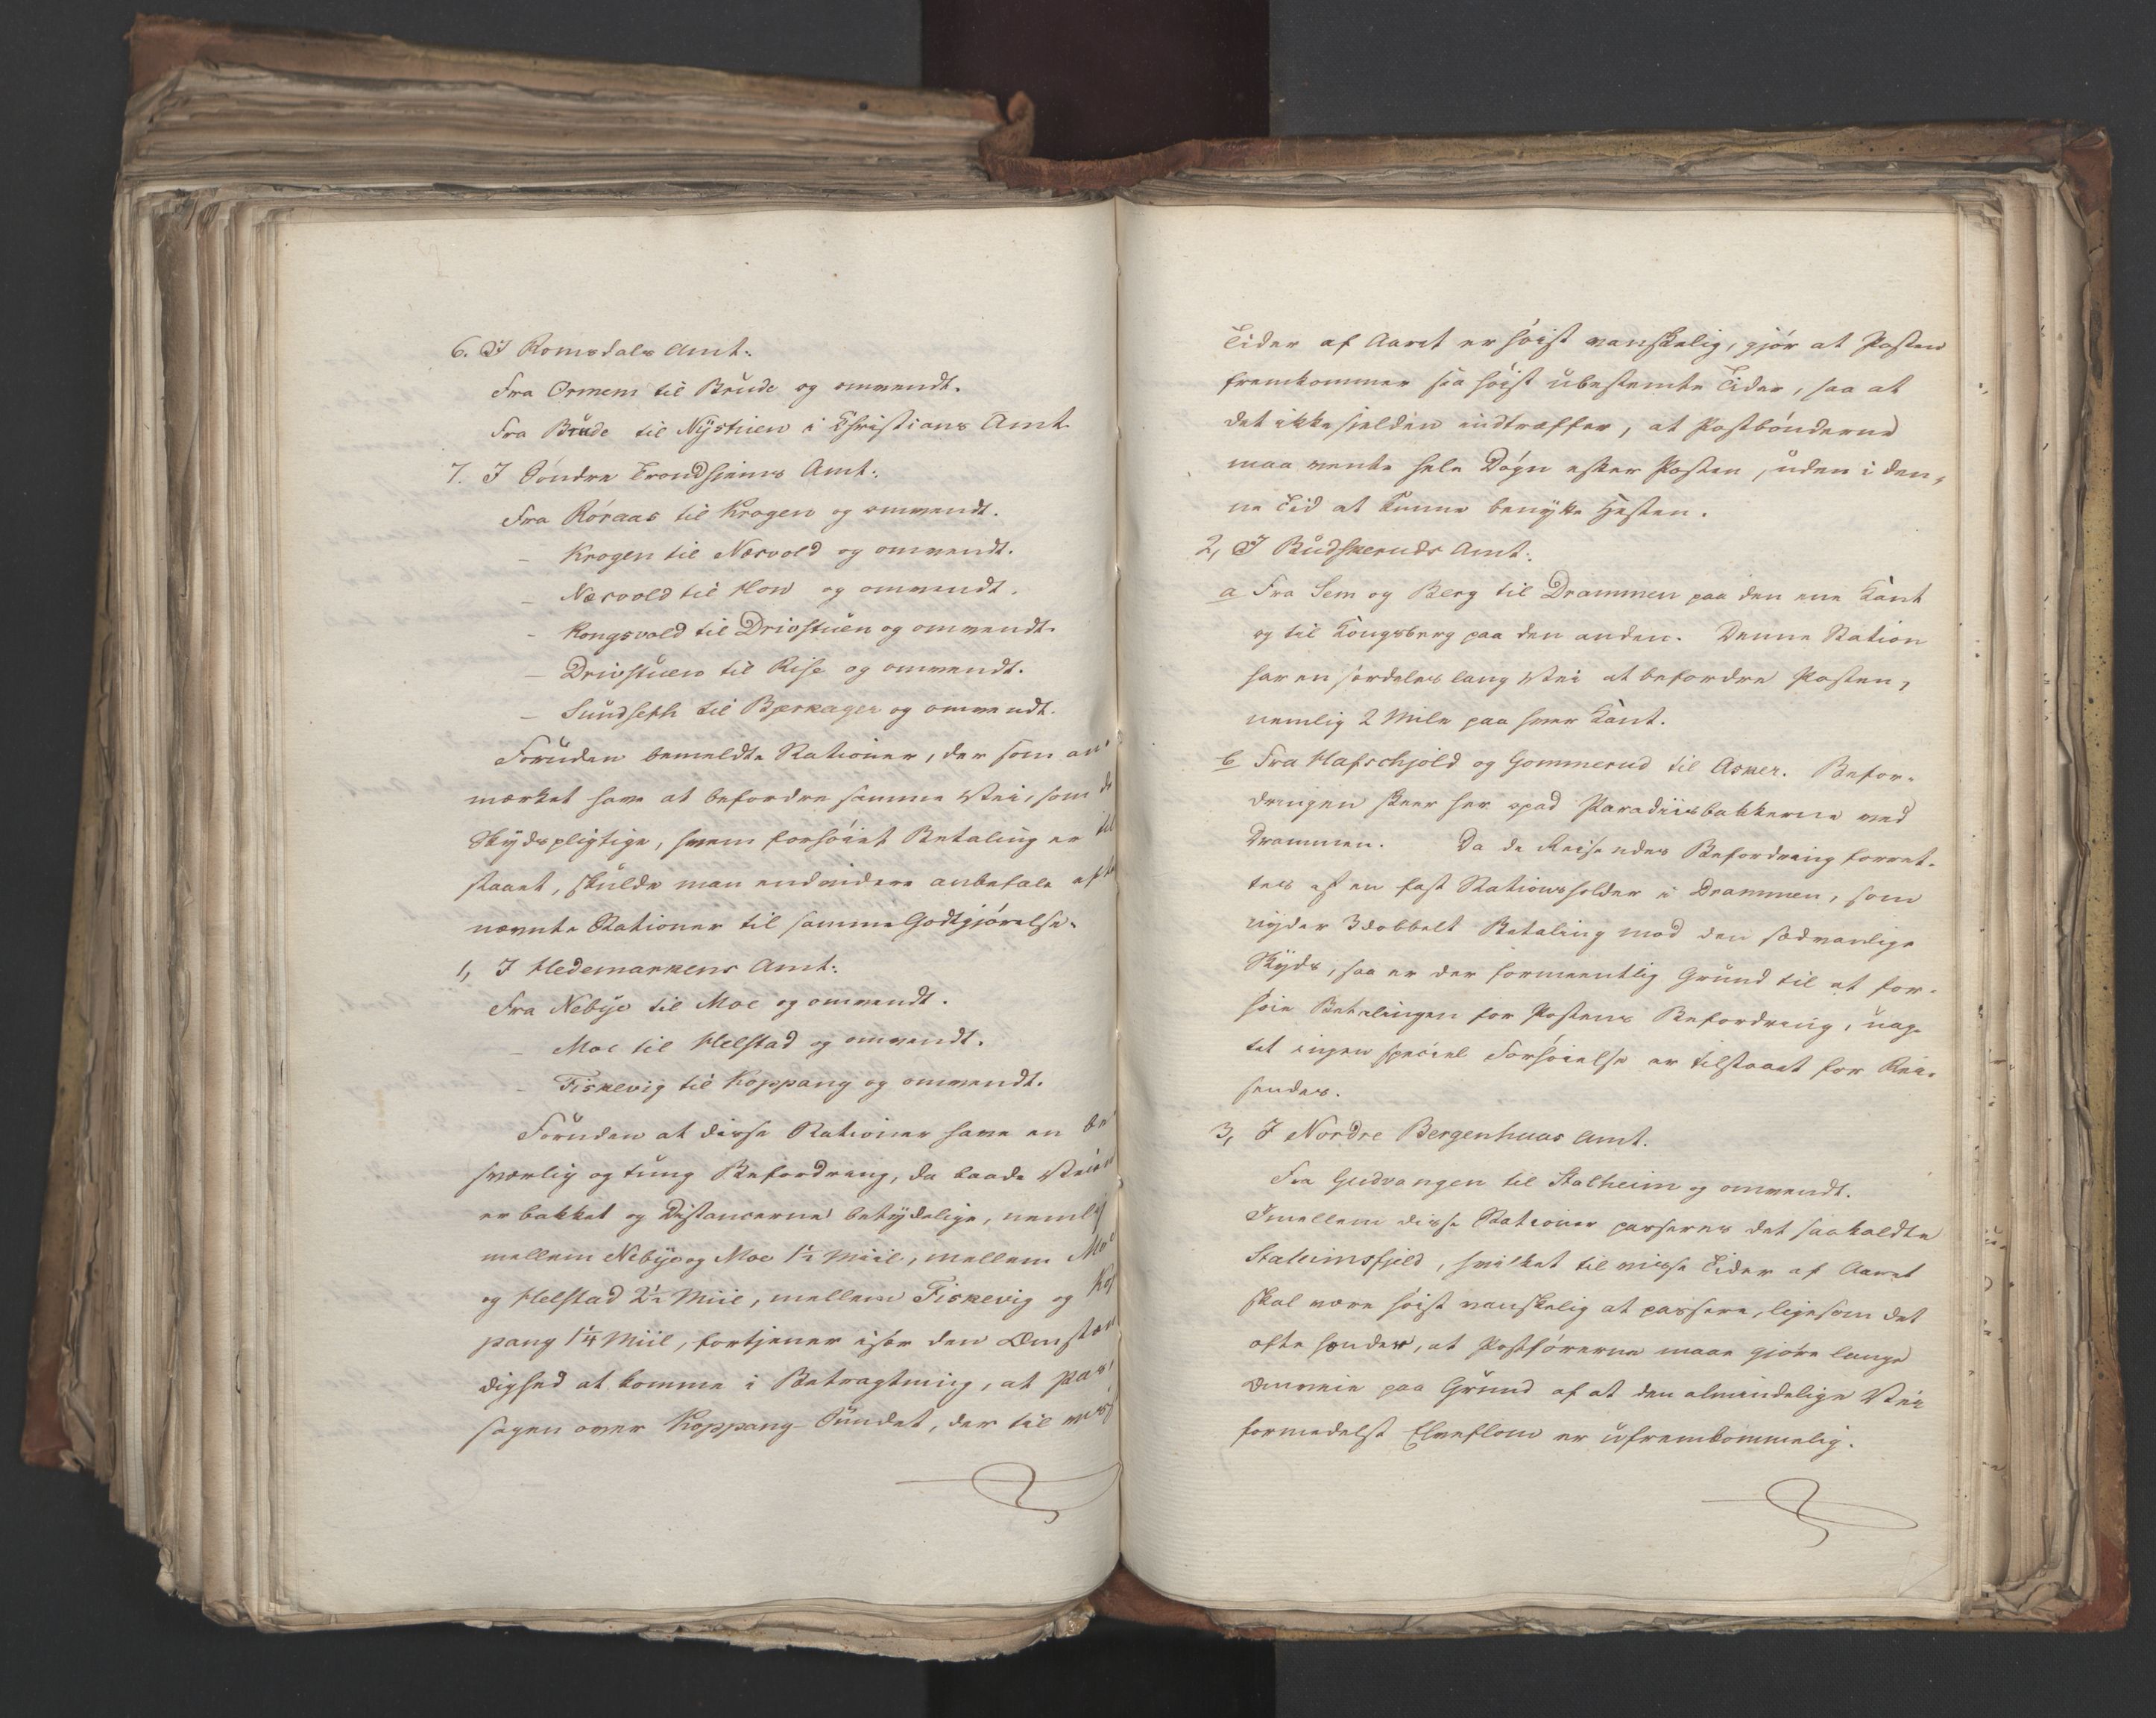 6. I Romsdals Amt:
Fra Ormem til Brude og omvendt.
Fra Brude til Nystuen i Christians Amt
7. I Søndre Trondhjems Amt:
Fra Røraas til Krogen og omvendt.
– Krogen til Næsvold og omvendt.
– Næsvold til Hov og omvendt.
– Kongsvold til Drivstuen og omvendt.
– Drivstuen til Rise og omvendt.
– Sundseth til Bjerkager og omvendt.
Foruden bemeldte Stationer, der som an-
mærket have at befordre samme Vei, som de
Skydspligtige, hvem forhøiet Betaling er til
staaet, skulde man endvidere anbefale efter
nævnte Stationer til samme Godtgjørelse.
1, I Hedemarkens Amt:
Fra Nebye til Moe og omvendt.
– Moe til Helstad og omvendt.
– Fiskevig til Koppang og omvendt.
Foruden at disse Stationer have en be
sværlig og tung Befordring, da baade Veien
er bakket og Distancerne betydelige, nemlig
mellem Nebye og Moe 1½ Miil, mellem Moe
og Helstad 2½ Miil, mellem Fiskevig og Kop
pang 1¼ Miil, fortjener især den Omstæn
dighed at komme i Betragtning, at Pas-
sagen over Koppang Sundet, der til visse
Tider af Aaret er høist vanskelig, gjør at Posten
fremkommer paa høist ubestemte Tider, saa at
det ikke sjelden indtræffer, at Postbønderne
maa vente hele Døgn efter Posten, uden i den-
ne Tid at kunne benytte Hesten.
2, I Budskeruds Amt:
a Fra Sem og Berg til Drammen paa den ene Kant
og til Kongsberg paa den anden. Denne Station
har en særdeles lang Vei at befordre Posten,
nemlig 2 Mile paa hver Kant.
b Fra Hafschjold og Gommerud til Asker. Befor-
dringen skeer her opad Paradiisbakkerne ved
Drammen. Da de Reisendes Befordring forret-
tes af en fast Stationsholder i Drammen, som
nyder 3dobbelt Betaling mod den sædvanlige
Skyds, saa er der formeentlig Grund til at for-
høie Betalingen for Postens Befordring, uag-
tet ingen speciel Forhøielse er tilstaaet for Rei-
sendes.
3, I Nordre Bergenhuus Amt.
Fra Gudvangen til Stalheim og omvendt.
Imellem disse Stationer passeres det saakaldte
Staleimsfjeld, hvilket til visse Tider af Aaret
skal være høist vanskelig at passere, ligesom det
ofte hænder, at Postførerne maae gjøre lange
Omveie paa Grund af at den almindelige Vei
formedelst Elveflom er ufremkommelig.